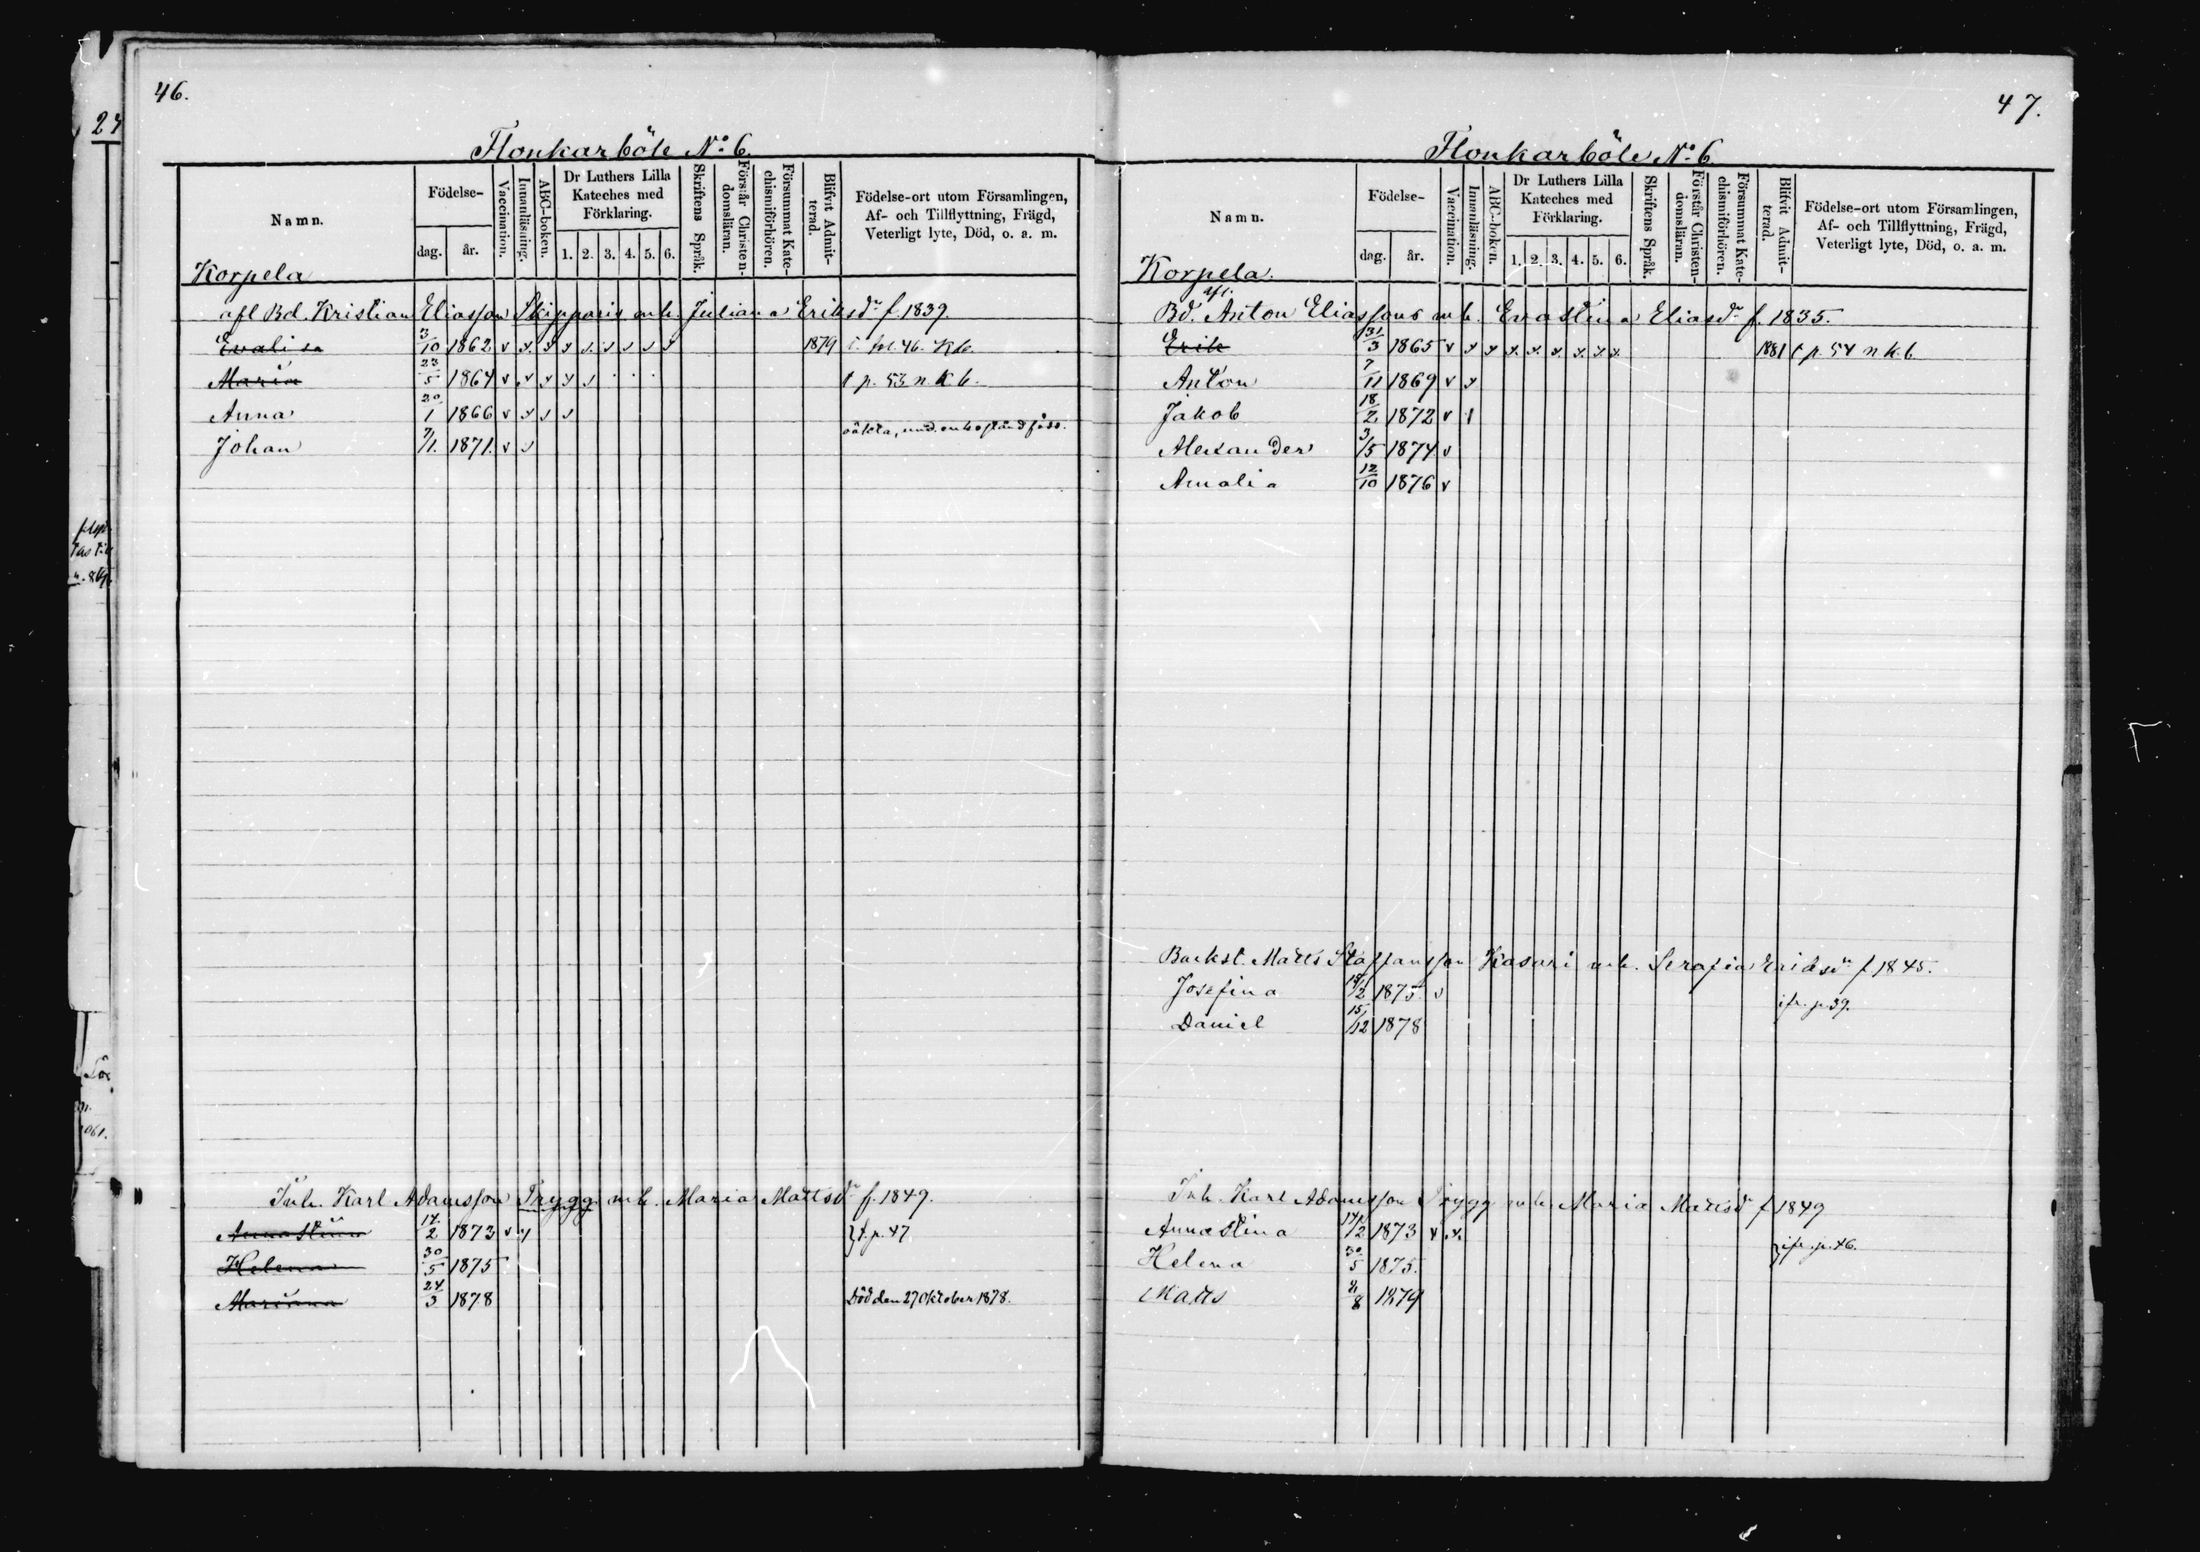 46.
Flonkarböle No 6.
Namn. Födelse- dag. år. Vaccination. Innanläsning. ABC-boken. Dr Luthers Lilla Kateches med Förklaring. 1. 2. 3. 4. 5. 6. Skriftens Språk. Förstår Christendomsläran. Försummat Katechismiförhören. Blifvit Admitterad. Födelse-ort utom Församlingen, Af- och Tillflyttning, Frägd, Veterligt lyte, Död, o. a. m.
Korpela
afl Bd. Kristian Eliasson Skipparis enk. Juliana Eriksdr f. 1839
Evalisa 3/10 1862 v 1879 46. K.b.
Maria 23/5 1864 v t p. 53 n. k b.
Anna 20/1 1866 v
Johan 7/1. 1871. v
Inh. Karl Adamsson Trygg m h. Maria Mattsdr f. 1849.
Annastina 14/2 1873 v t. p. 47
Helena 30/5 1875
Mariana 24/3 1878 Död den 27 Oktober 1878.
47.
Flonkarböle No 6
Namn. Födelse- dag. år. Vaccination. Innanläsning. ABC-boken. Dr Luthers Lilla Kateches med Förklaring. 1. 2. 3. 4. 5. 6. Skriftens Språk. Förstår Christendomsläran. Försummat Katechismiförhören. Blifvit Admitterad. Födelse-ort utom Församlingen, Af- och Tillflyttning, Frägd, Veterligt lyte, Död, o. a. m.
Korpela.
Bd. afl. Anton Eliassons enk. Evastina Eliasdr f. 1835.
Erik 31/3 1865 v 1881 t p. 54 n. k. b
Anton 7/11 1869 v
Jakob 18/2 1872 v
Alexander 3/5 1874 v
Amalia 12/10 1876 v
Backst. Matts Staffansson Kasari m h. Serafia Eriksdr f 1845.
Josefina 18/2 1875. v ifr. p. 39.
Daniel 15/12 1878
Inh. Karl Adamsson Trygg m h. Maria Mattsdr f 1849
Annastina 14/2 1873 v ifr. p. 46.
Helena 30/5 1875.
Matts 1879